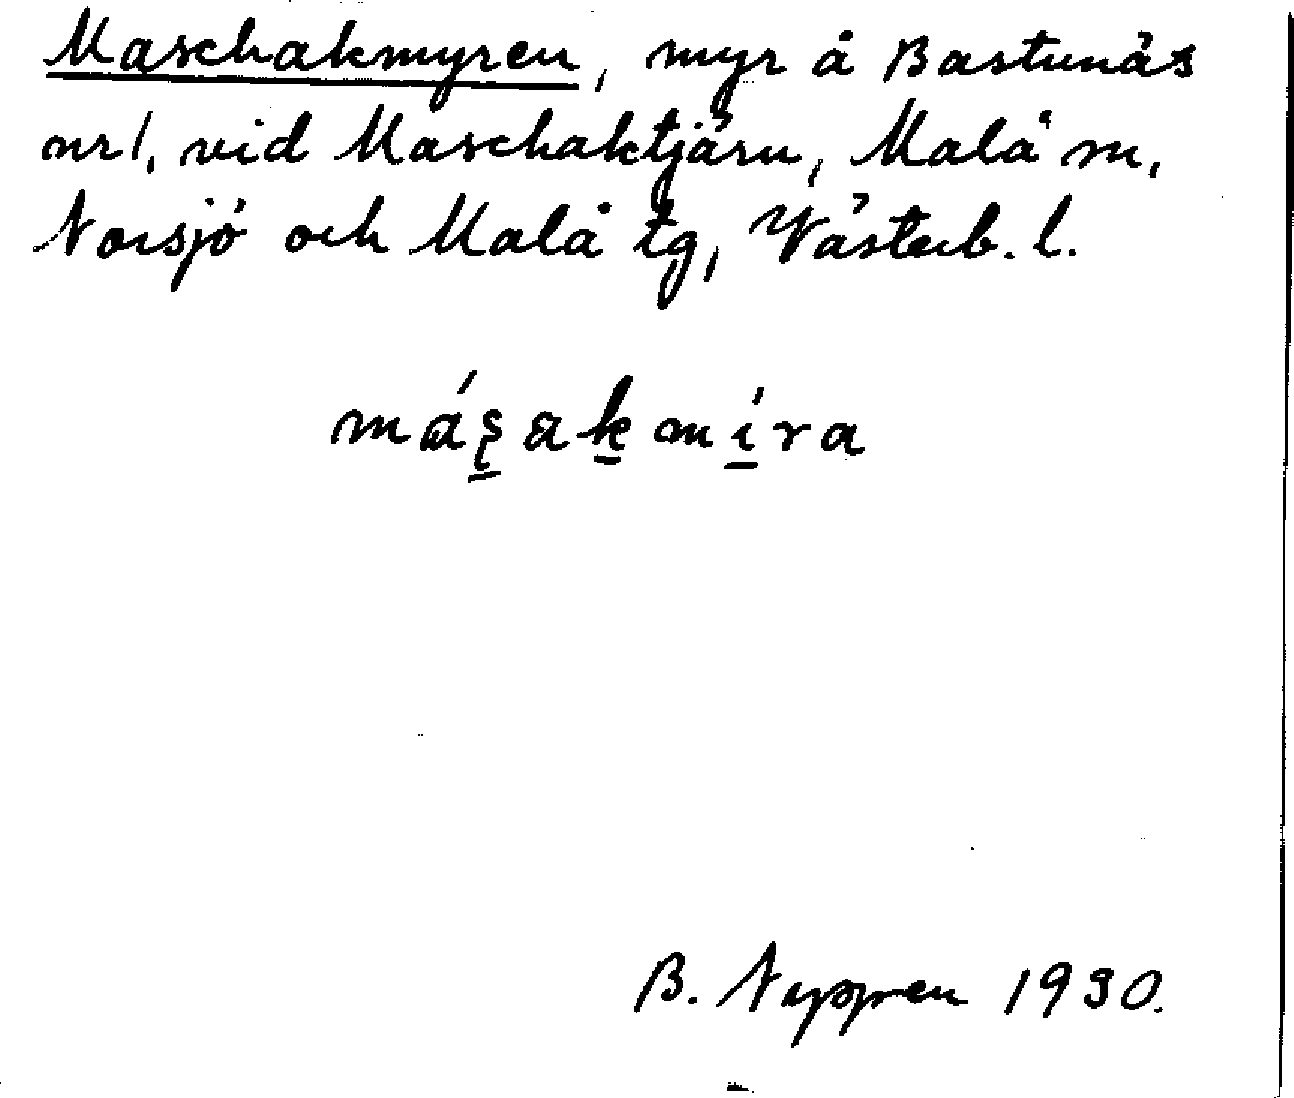 Maschakmyren, myr å Bastunäs
nr 1, vid Maschaktjärn, Malå sn,
Norsjö och Malå tg, Västerb. l.
máʂakmíra
B. Nyssen 1930.